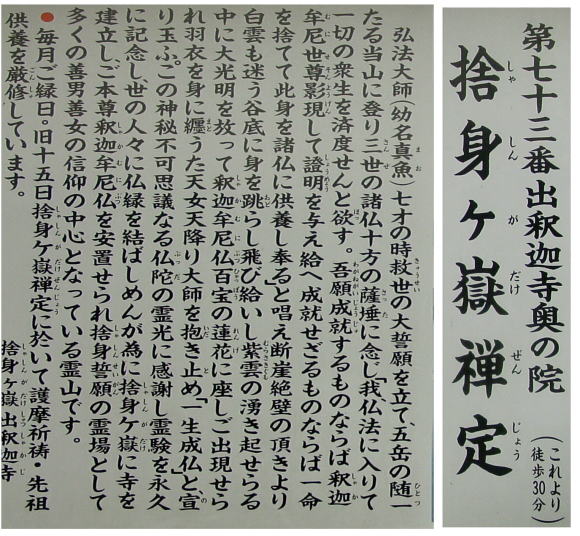 第七十三番出釈迦寺奥の院
捨身ヶ嶽禅定
しゃしんがだけぜんじょう
(これより徒歩30分)
弘法大師(幼名真魚)七才の時救世の大誓願を立て、五岳の随一
たる当山に登り三世の諸仏十方の薩埵に念じ「我仏法に入りて
一切の衆生を済度せんと欲す。吾願成就するものならば釈迦
牟尼世尊影現して證明を与え給へ成就せざるものならば一命
を捨てて此身を諸仏に供養し奉る」と唱え断崖絶壁の頂きより
白雲も迷う谷底に身を跳らし飛び給いし紫雲の湧き起せらる
中に大光明を放って釈迦牟尼仏百宝の蓮花に座しご出現せら
れ羽衣を身に纏うた天女天降り大師を抱き止め「一生成仏」と宣
り玉ふ。この神秘不可思議なる仏陀の霊光に感謝し霊験を永久
に記念し、世の人々に仏縁を結ばしめんが為に捨身ヶ嶽に寺を
建立し、ご本尊釈迦牟尼仏を安置せられ捨身誓願の霊場として
多くの善男善女の信仰の中心となっている霊山です。
●毎月ご縁日。旧十五日捨身ヶ嶽禅定に於いて護摩祈祷・先祖
供養を厳修しています。
捨身ヶ嶽出釈迦寺